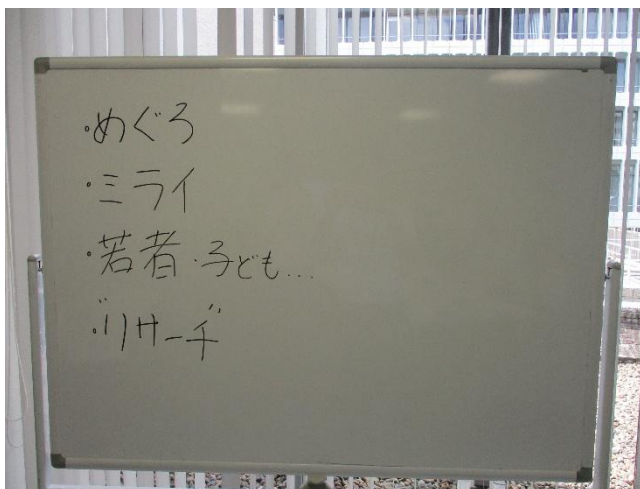 ・めぐろ
・ミライ
・若者・子ども...
・"リサーチ"